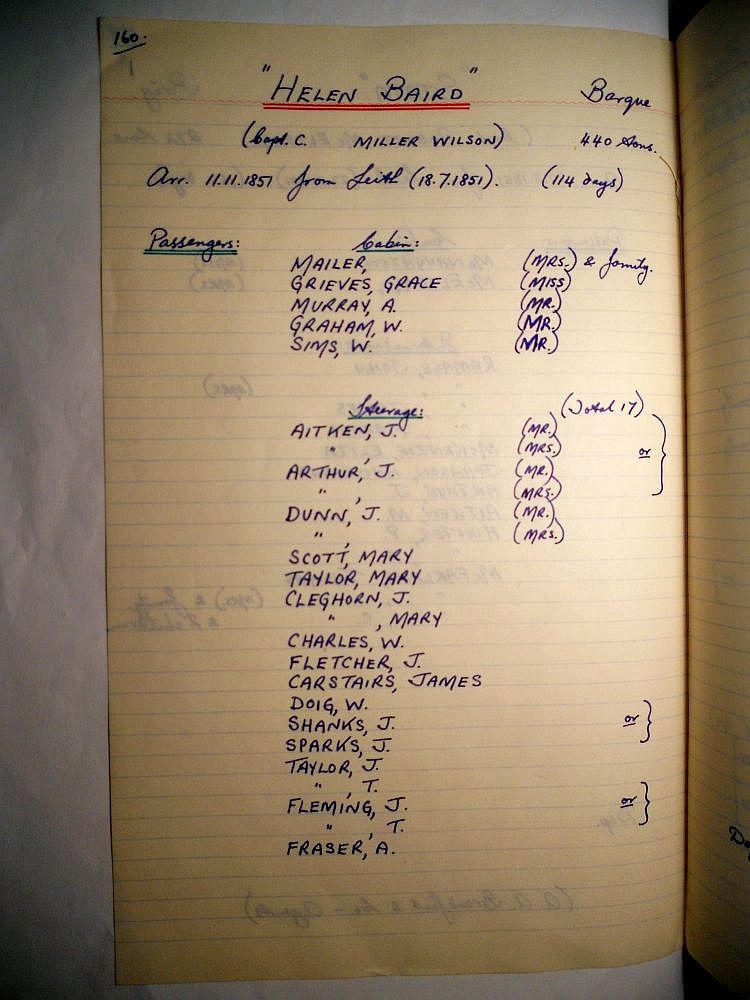 160.
"HELEN BAIRD" Barque
(Capt. C. MILLER WILSON) 440 tons.
Arr. 11.11.1851 from Leith (18.7.1851). (114 days)
Passengers: Cabin:
MAILER, (MRS.) & family.
GRIEVES, GRACE (MISS)
MURRAY, A. (MR.)
GRAHAM, W. (MR.)
SIMS, W. (MR.)
Steerage: (Total 17)
AITKEN, J. (MR.)
" , (MRS.) or
ARTHUR, J. (MR.)
" , (MRS.)
DUNN, J. (MR.)
" , (MRS.)
SCOTT, MARY
TAYLOR, MARY
CLEGHORN, J.
" , MARY
CHARLES, W.
FLETCHER, J.
CARSTAIRS, JAMES
DOIG, W.
SHANKS, J. or
SPARKS, J.
TAYLOR, J.
" , T.
FLEMING, J. or
" , T.
FRASER, A.